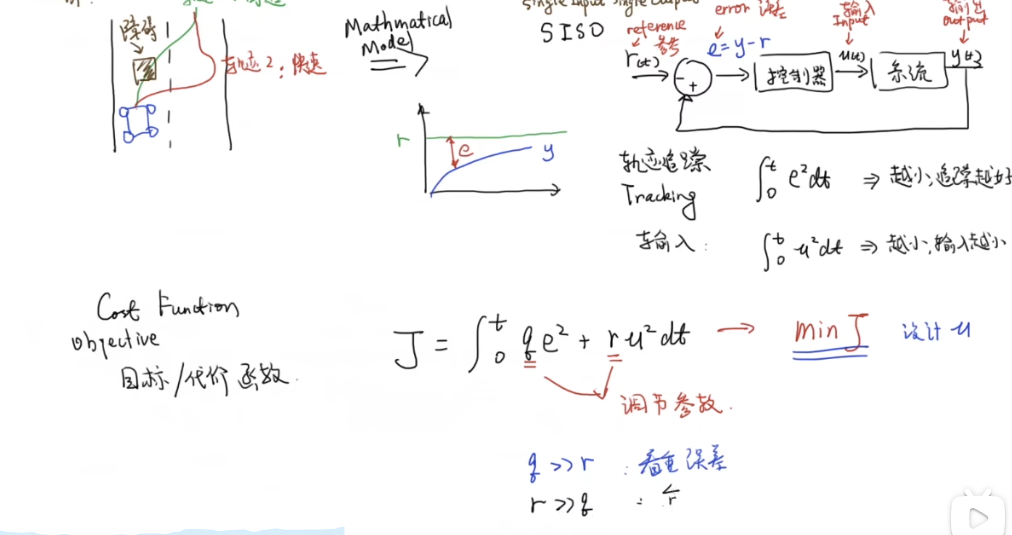 障碍
轨迹2：快速
Mathmatical
Model
single input single output
SISO
reference
参考
r(t)
error 误差
e=y-r
输入
Input
输出
output
- +
控制器
u(t)
系统
y(t)
r
e
y
轨迹追踪
Tracking
∫₀ᵗ e²dt ⇒ 越小，追踪越好
输入：
∫₀ᵗ u²dt ⇒ 越小，输入越小
Cost Function
objective
目标/代价函数.
J = ∫₀ᵗ q e² + r u² dt → min J 设计 u
调节参数.
q >> r : 着重误差
r >> q :